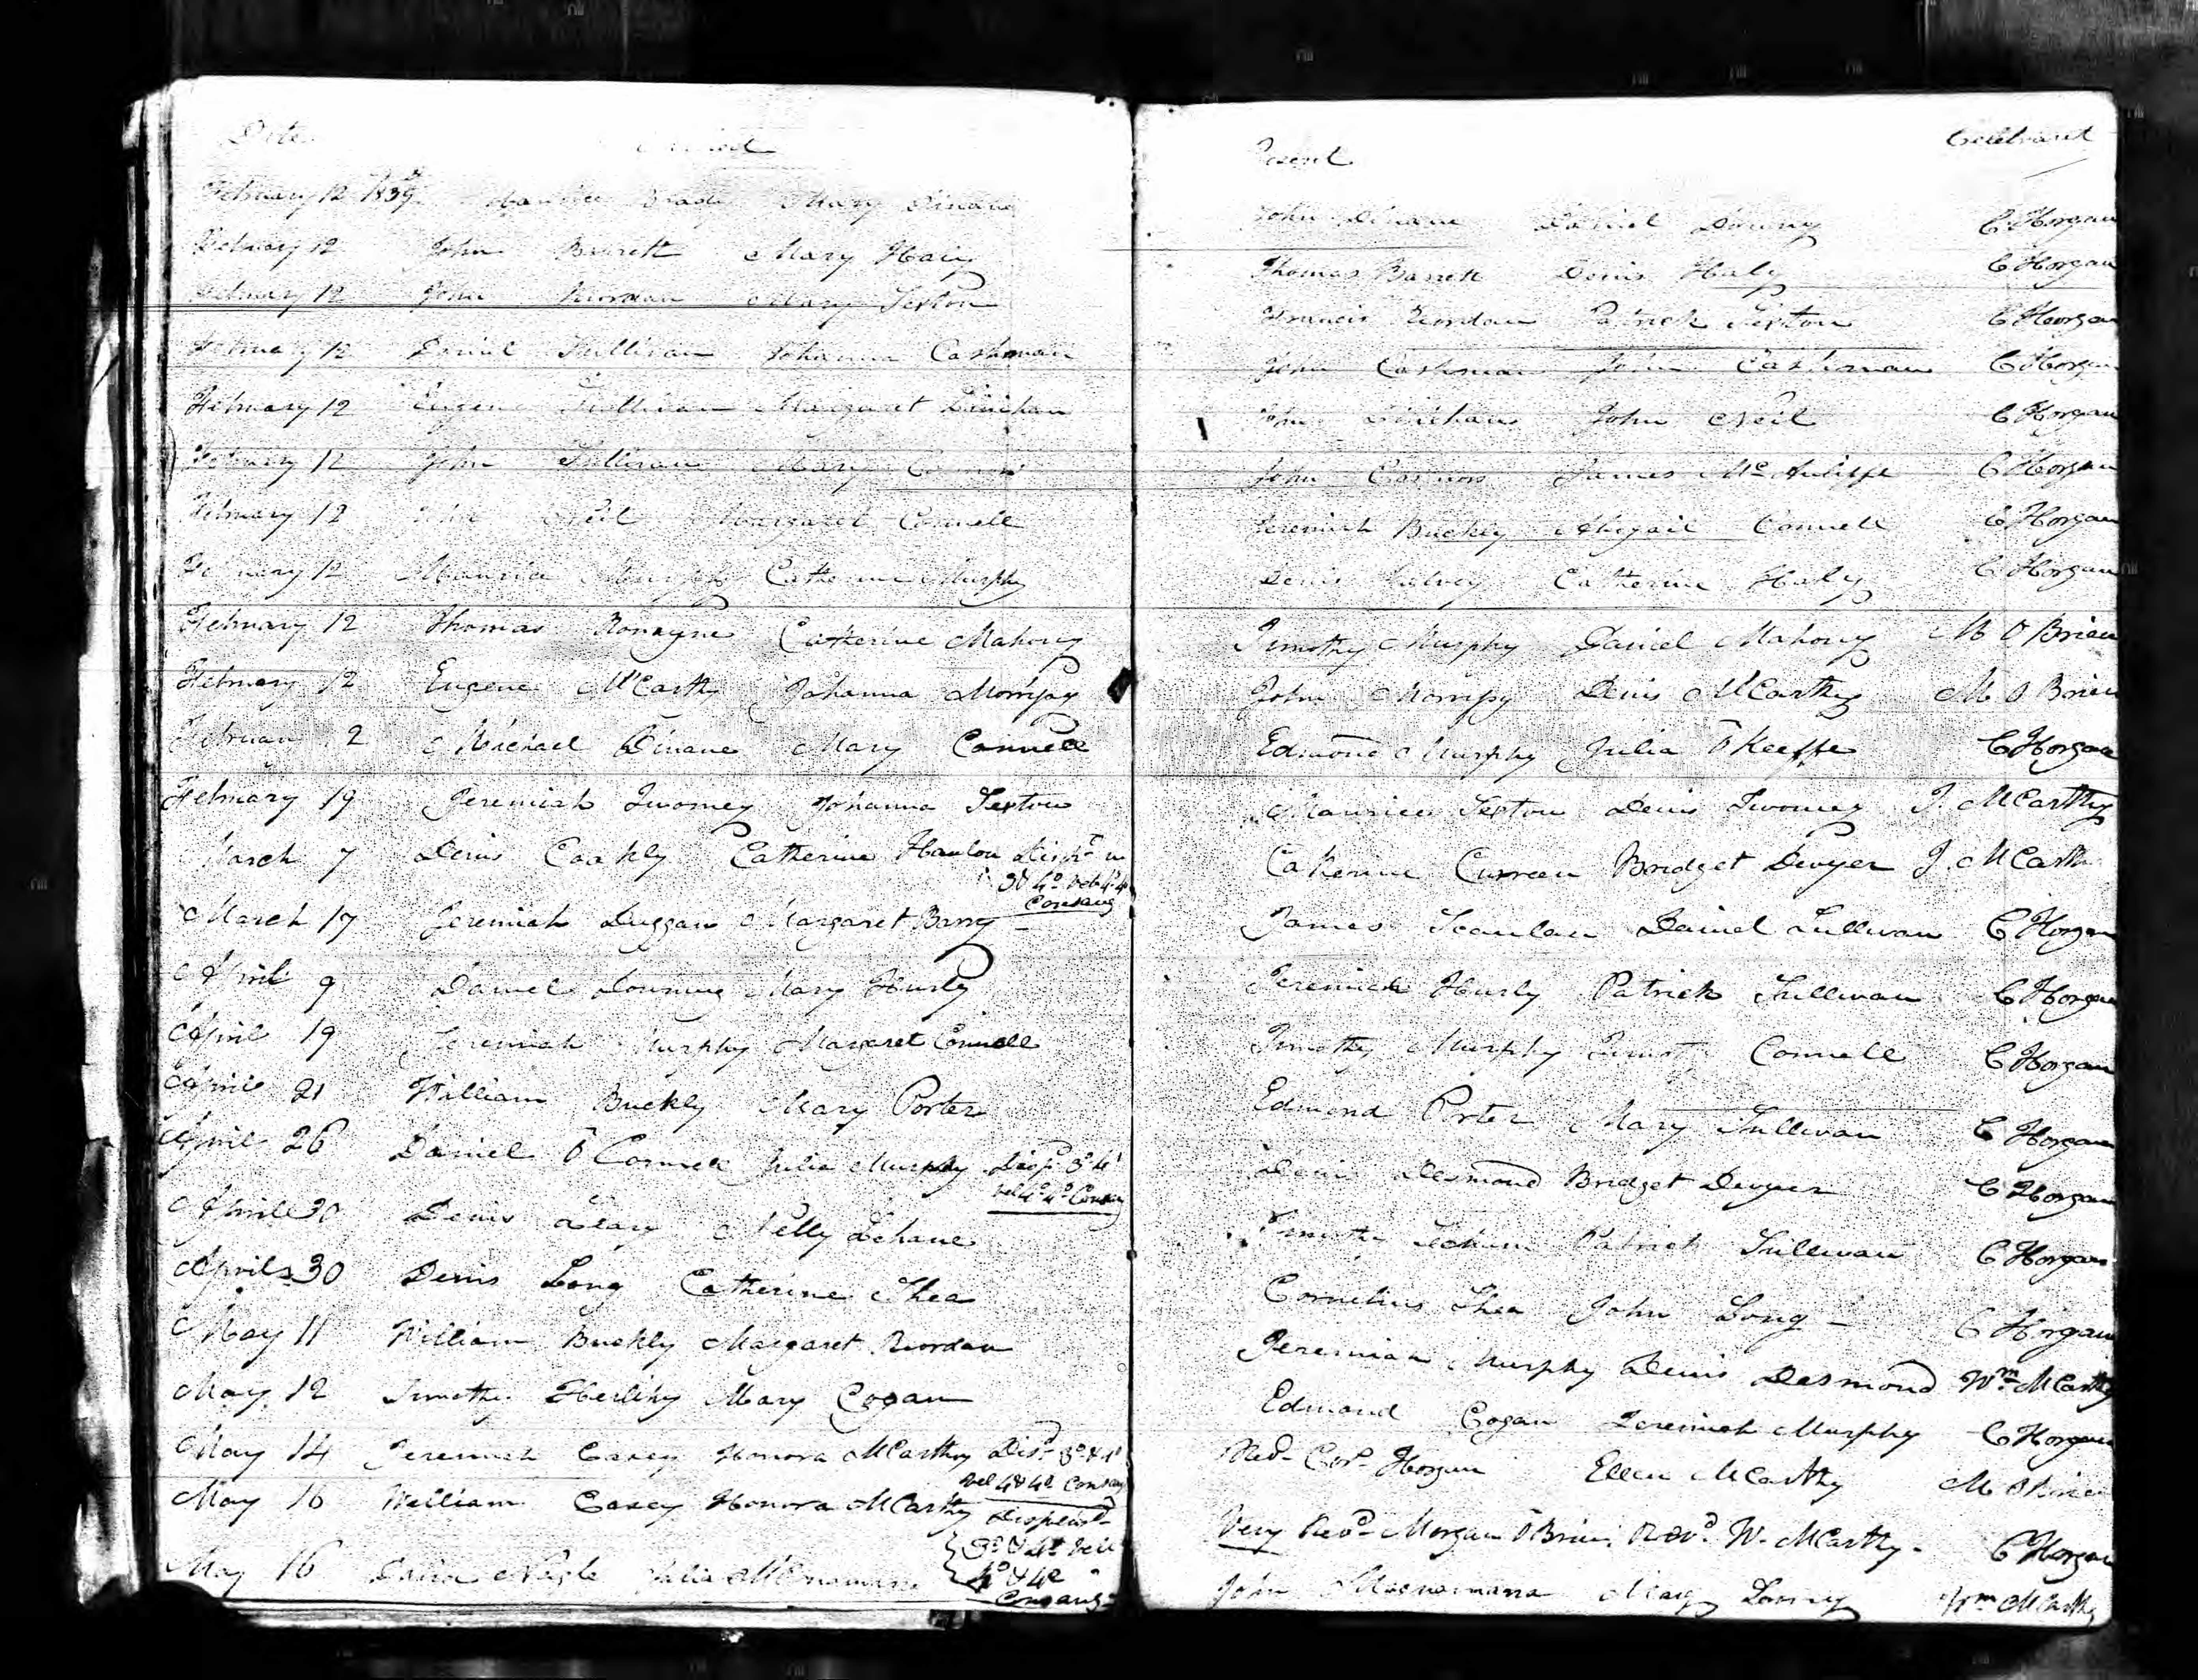 Date
Present
Celebrant
February 12 1839 Maurice Mary Dinane
John Dinane Daniel Downy C Horgan
February 12 John Barrett Mary Haly
Thomas Barrett Denis Haly C Horgan
February 12 John Riordan Mary Sexton
Francis Reordan Patrick Sexton C Horgan
February 12 Daniel Sullivan Johanna Cashman
John Cashman John Cashman C Horgan
February 12 Eugene Sullivan Margaret Linehan
John Linehan John Neil C Horgan
February 12 John Sullivan Mary Connors
John Connors James Mc Auliffe C Horgan
February 12 John Neil Margaret Connell
Jeremiah Buckly Abigail Connell C Horgan
February 12 Maurice Murphy Catherine Murphy
Denis Catherine Haly C Horgan
February 12 Thomas Ronayne Catherine Mahony
Timothy Murphy Daniel Mahony M O Brien
February 12 Eugene McCarthy Johanna
John Denis McCarthy M O Brien
February 12 Michael Dinane Mary Connell
Edmond Murphy Julia O Keeffe C Horgan
February 19 Jeremiah Twomey Johanna Sexton
Maurice Sexton Denis Twomey J. McCarthy
March 7 Denis Coakly Catherine Hanlon
Catherine Curreen Bridget Dwyer J. McCarthy
Consang
March 17 Jeremiah Duggan Margaret Barry
James Scanlan Daniel Sullivan C Horgan
April 9 Daniel Mary Hurly
Jeremiah Hurly Patrick Sullivan C Horgan
April 19 Jeremiah Murphy Margaret Connell
Timothy Murphy Connell C Horgan
April 21 William Buckly Mary Porter
Edmond Porter Mary Sullivan C Horgan
April 26 Daniel O Connell Julia Murphy Disp. 3o 4o
vel 4o 4o Consang
Denis Desmond Bridget Dwyer C Horgan
April 30 Denis Leary Nelly Lehane
Timothy Patrick Sullivan C Horgan
April 30 Denis Long Catherine Shea
Cornelius Shea John Long C Horgan
May 11 William Buckly Margaret Riordan
Jeremiah Murphy Denis Desmond Wm McCarthy
May 12 Timothy Herlihy Mary Cogan
Edmond Cogan Jeremiah Murphy C Horgan
May 14 Jeremiah Casey Honora McCarthy Disp 3o & 4o
vel 4o & 4o Consang
Revd. Cors. Horgan Ellen McCarthy M O Brien
May 16 William Casey Honora McCarthy Dispensd
3o & 4o vel
4o & 4o
Consang
Very Revd. Morgan O Brien Revd W. McCarthy C Horgan
May 16 David Nagle Julia McNamara
John Macnamara Mary Wm McCarthy